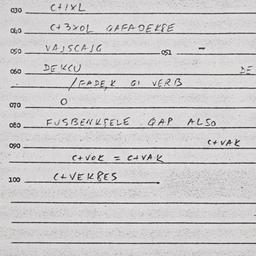 030 C+1XL
040 C+3XOL GAFADEKSE
050 VAJSCAJG 051 -
060 DEKCU DE
/FADE,K GI VERB
070 O
080 FUSBENKSELE GAP ALSO
090 C+VAK
C+VOK = C+VAK
100 C+VEKBES